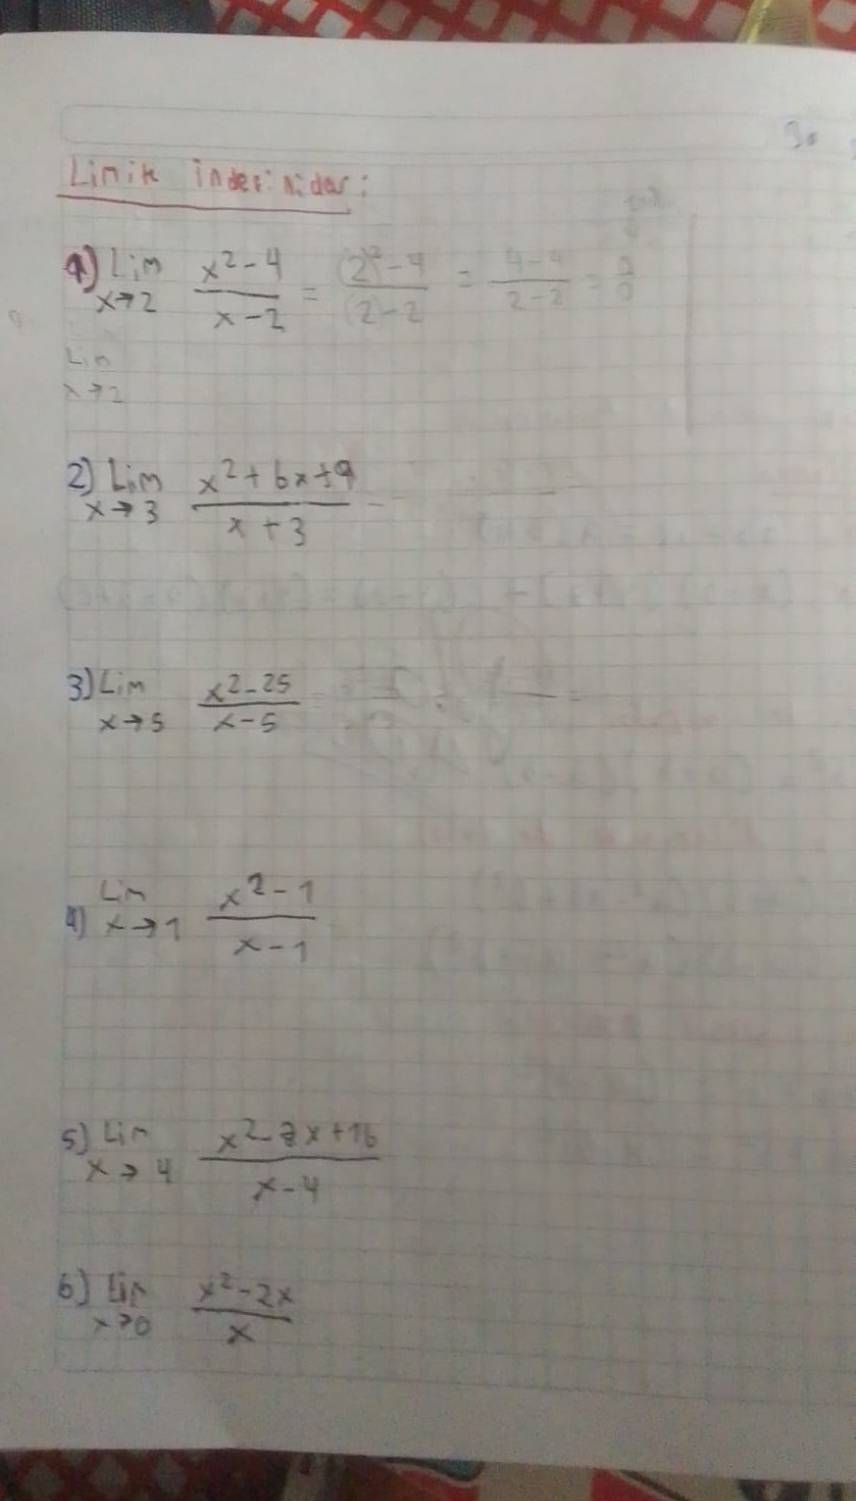 1) Lim x→2 (x²-4)/(x-2) = ((2)²-4)/((2)-2) = (4-4)/(2-2) = 0/0
Lim x→2
2) Lim x→3 (x²+6x+9)/(x+3)
3) Lim x→5 (x²-25)/(x-5)
4) Lim x→1 (x²-1)/(x-1)
5) Lim x→4 (x²-8x+16)/(x-4)
6) Lim x→0 (x²-2x)/x